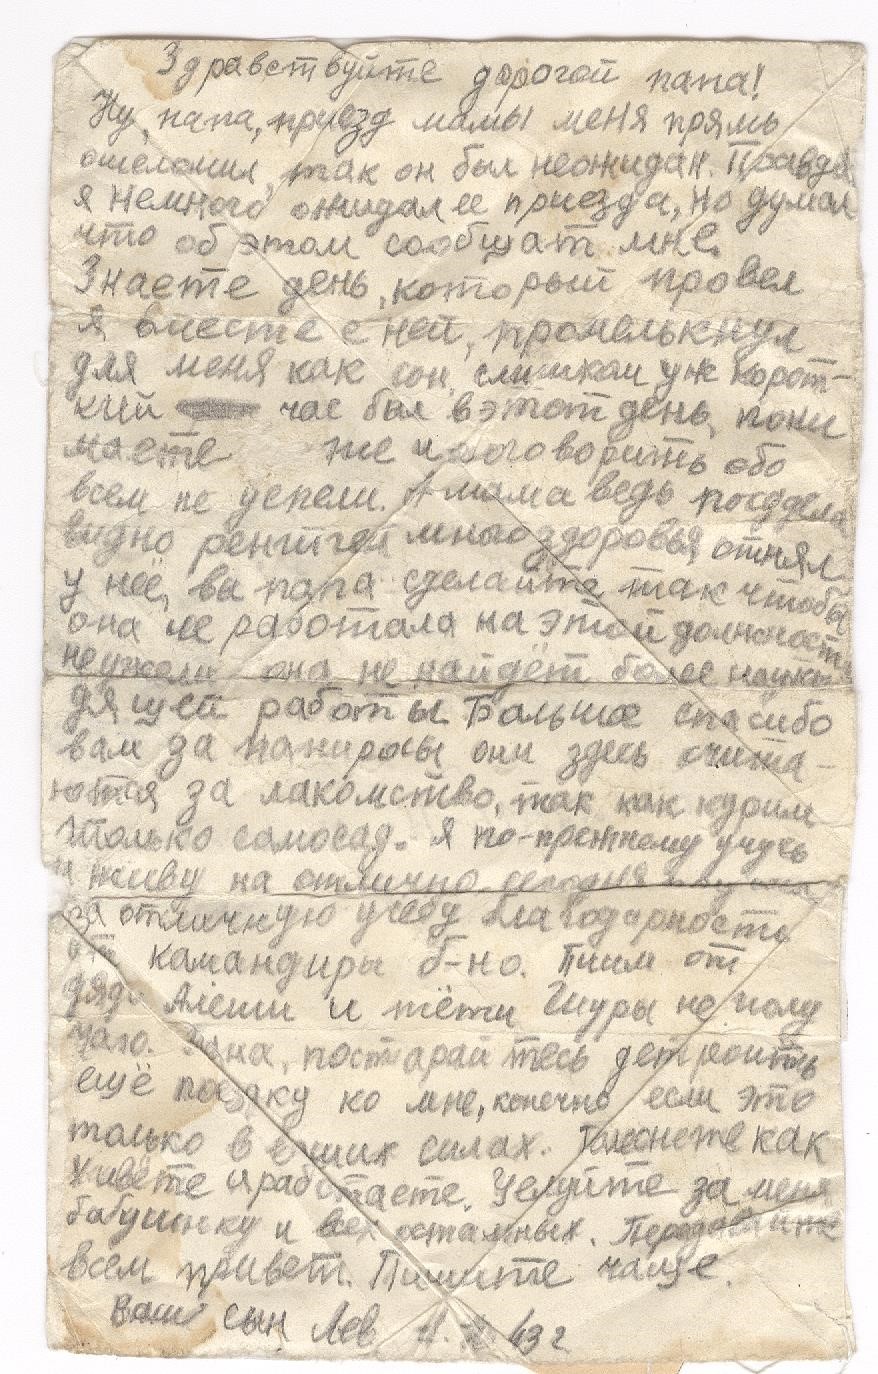 Здравствуйте дорогой папа!
Ну, папа, приезд мамы меня прямь
ошеломил, так он был неожидан. Правда
я немного ожидал ее приезда, но думал
что об этом сообщат мне.
Знаете день, который провел
я вместе с ней, промелькнул
для меня как сон, слишком уж корот-
кий час был в этот день, пони
маете же и поговорить обо
всем не успели. А мама ведь поседела
видно рентген много здоровья отнял
у неё, вы папа сделайте так чтобы
она не работала на этой должности
неужели она не найдёт более
дящей работы Большое спасибо
вам за папиросы они здесь счита-
ются за лакомство, так как курим
только самосад. Я по-прежнему учусь
и живу на отлично. сегодня получил
за отличную учебу благодарность
от командиры б-на. Писем от
дяди Алёши и тёти Шуры не полу
чаю. Папа, постарайтесь устроить
ещё поездку ко мне, конечно если это
только в ваших силах. как
живёте и работаете. Целуйте за меня
бабушку и всех остальных. Передавайте
всем привет. Пишите чаще.
Ваш сын Лев 43 г